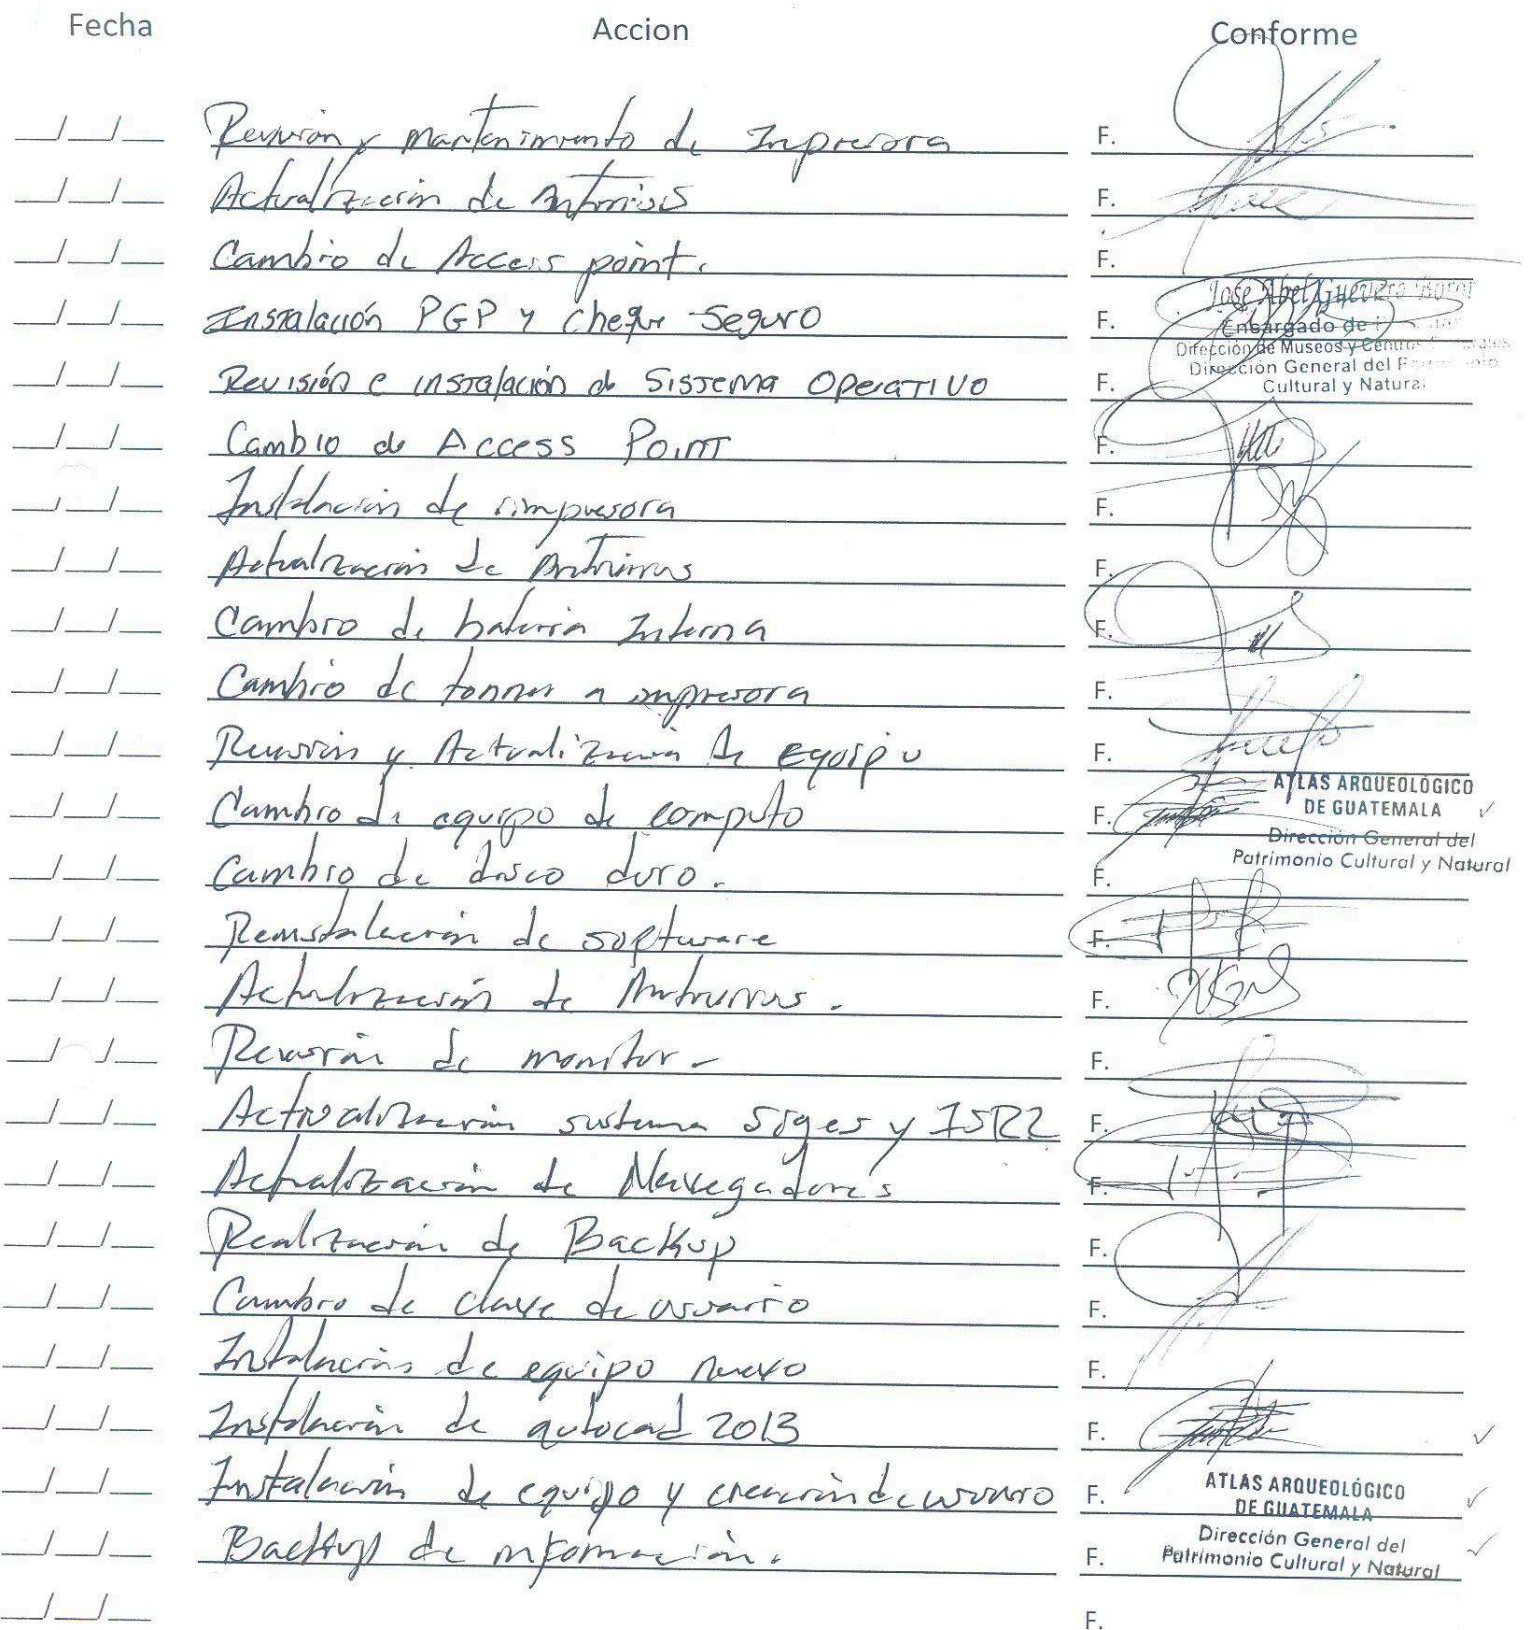 Fecha Accion Conforme
__/__/__ Revisión y mantenimiento de Impresora F.
__/__/__ Actualización de Antivirus F.
__/__/__ Cambio de Access point. F.
__/__/__ Instalación PGP y cheque Seguro F.
José Abel Guevara
Encargado de
Dirección de Museos y Centros
Dirección General del
Cultural y Natural
__/__/__ Revisión e instalación de Sistema Operativo F.
__/__/__ Cambio de Access Point F.
__/__/__ Instalación de impresora F.
__/__/__ Actualización de Antivirus F.
__/__/__ Cambio de bateria Interna F.
__/__/__ Cambio de tonner a impresora F.
__/__/__ Revisión y Actualización de Equipo F.
__/__/__ Cambio de equipo de computo F.
ATLAS ARQUEOLÓGICO
DE GUATEMALA
Dirección General del
Patrimonio Cultural y Natural
__/__/__ Cambio de disco duro. F.
__/__/__ Reinstalación de software F.
__/__/__ Actualización de Antivirus. F.
__/__/__ Revisión de monitor- F.
__/__/__ Actualización sistema Siges y F.
__/__/__ Actualización de Navegadores F.
__/__/__ Realización de Backup F.
__/__/__ Cambio de clave de usuario F.
__/__/__ Instalación de equipo nuevo F.
__/__/__ Instalación de autocad 2013 F.
__/__/__ Instalación de equipo y creación de usuario F.
ATLAS ARQUEOLÓGICO
DE GUATEMALA
Dirección General del
Patrimonio Cultural y Natural
__/__/__ Backup de información. F.
__/__/__ F.